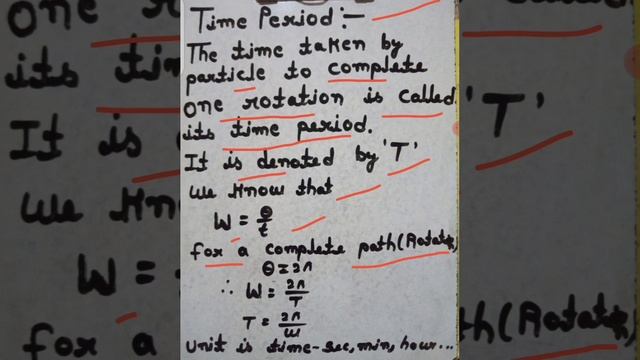 Time Period:-
The time taken by
particle to complete
one rotation is called
its time period.
It is denoted by 'T'
we know that
W = θ/t
for a complete path (Rotation)
θ = 2π
∴ W = 2π/T
T = 2π/W
unit is time - sec, min, hour...